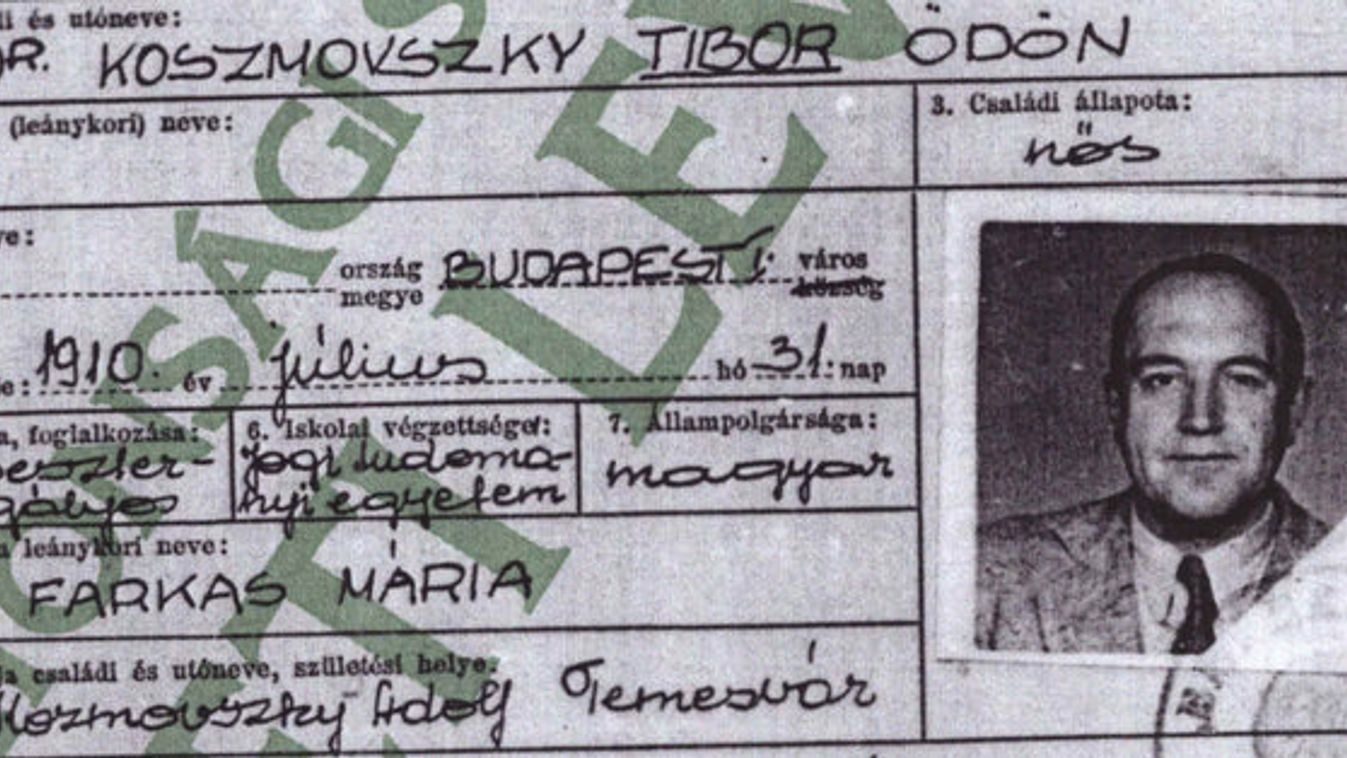 li és utóneve:
DR. KOSZMOVSZKY TIBOR ÖDÖN
(leánykori) neve:
3. Családi állapota:
nős
ve:
ország megye BUDAPEST I. város község
e: 1910. év július hó 31. nap
a, foglalkozása:
eszter-
gályos
6. Iskolai végzettsége:
Jogi tudomá-
nyi egyetem
7. Állampolgársága:
magyar
a leánykori neve:
FARKAS MÁRIA
ja családi és utóneve, születési helye.
Kozmovszky Adolf Temesvár